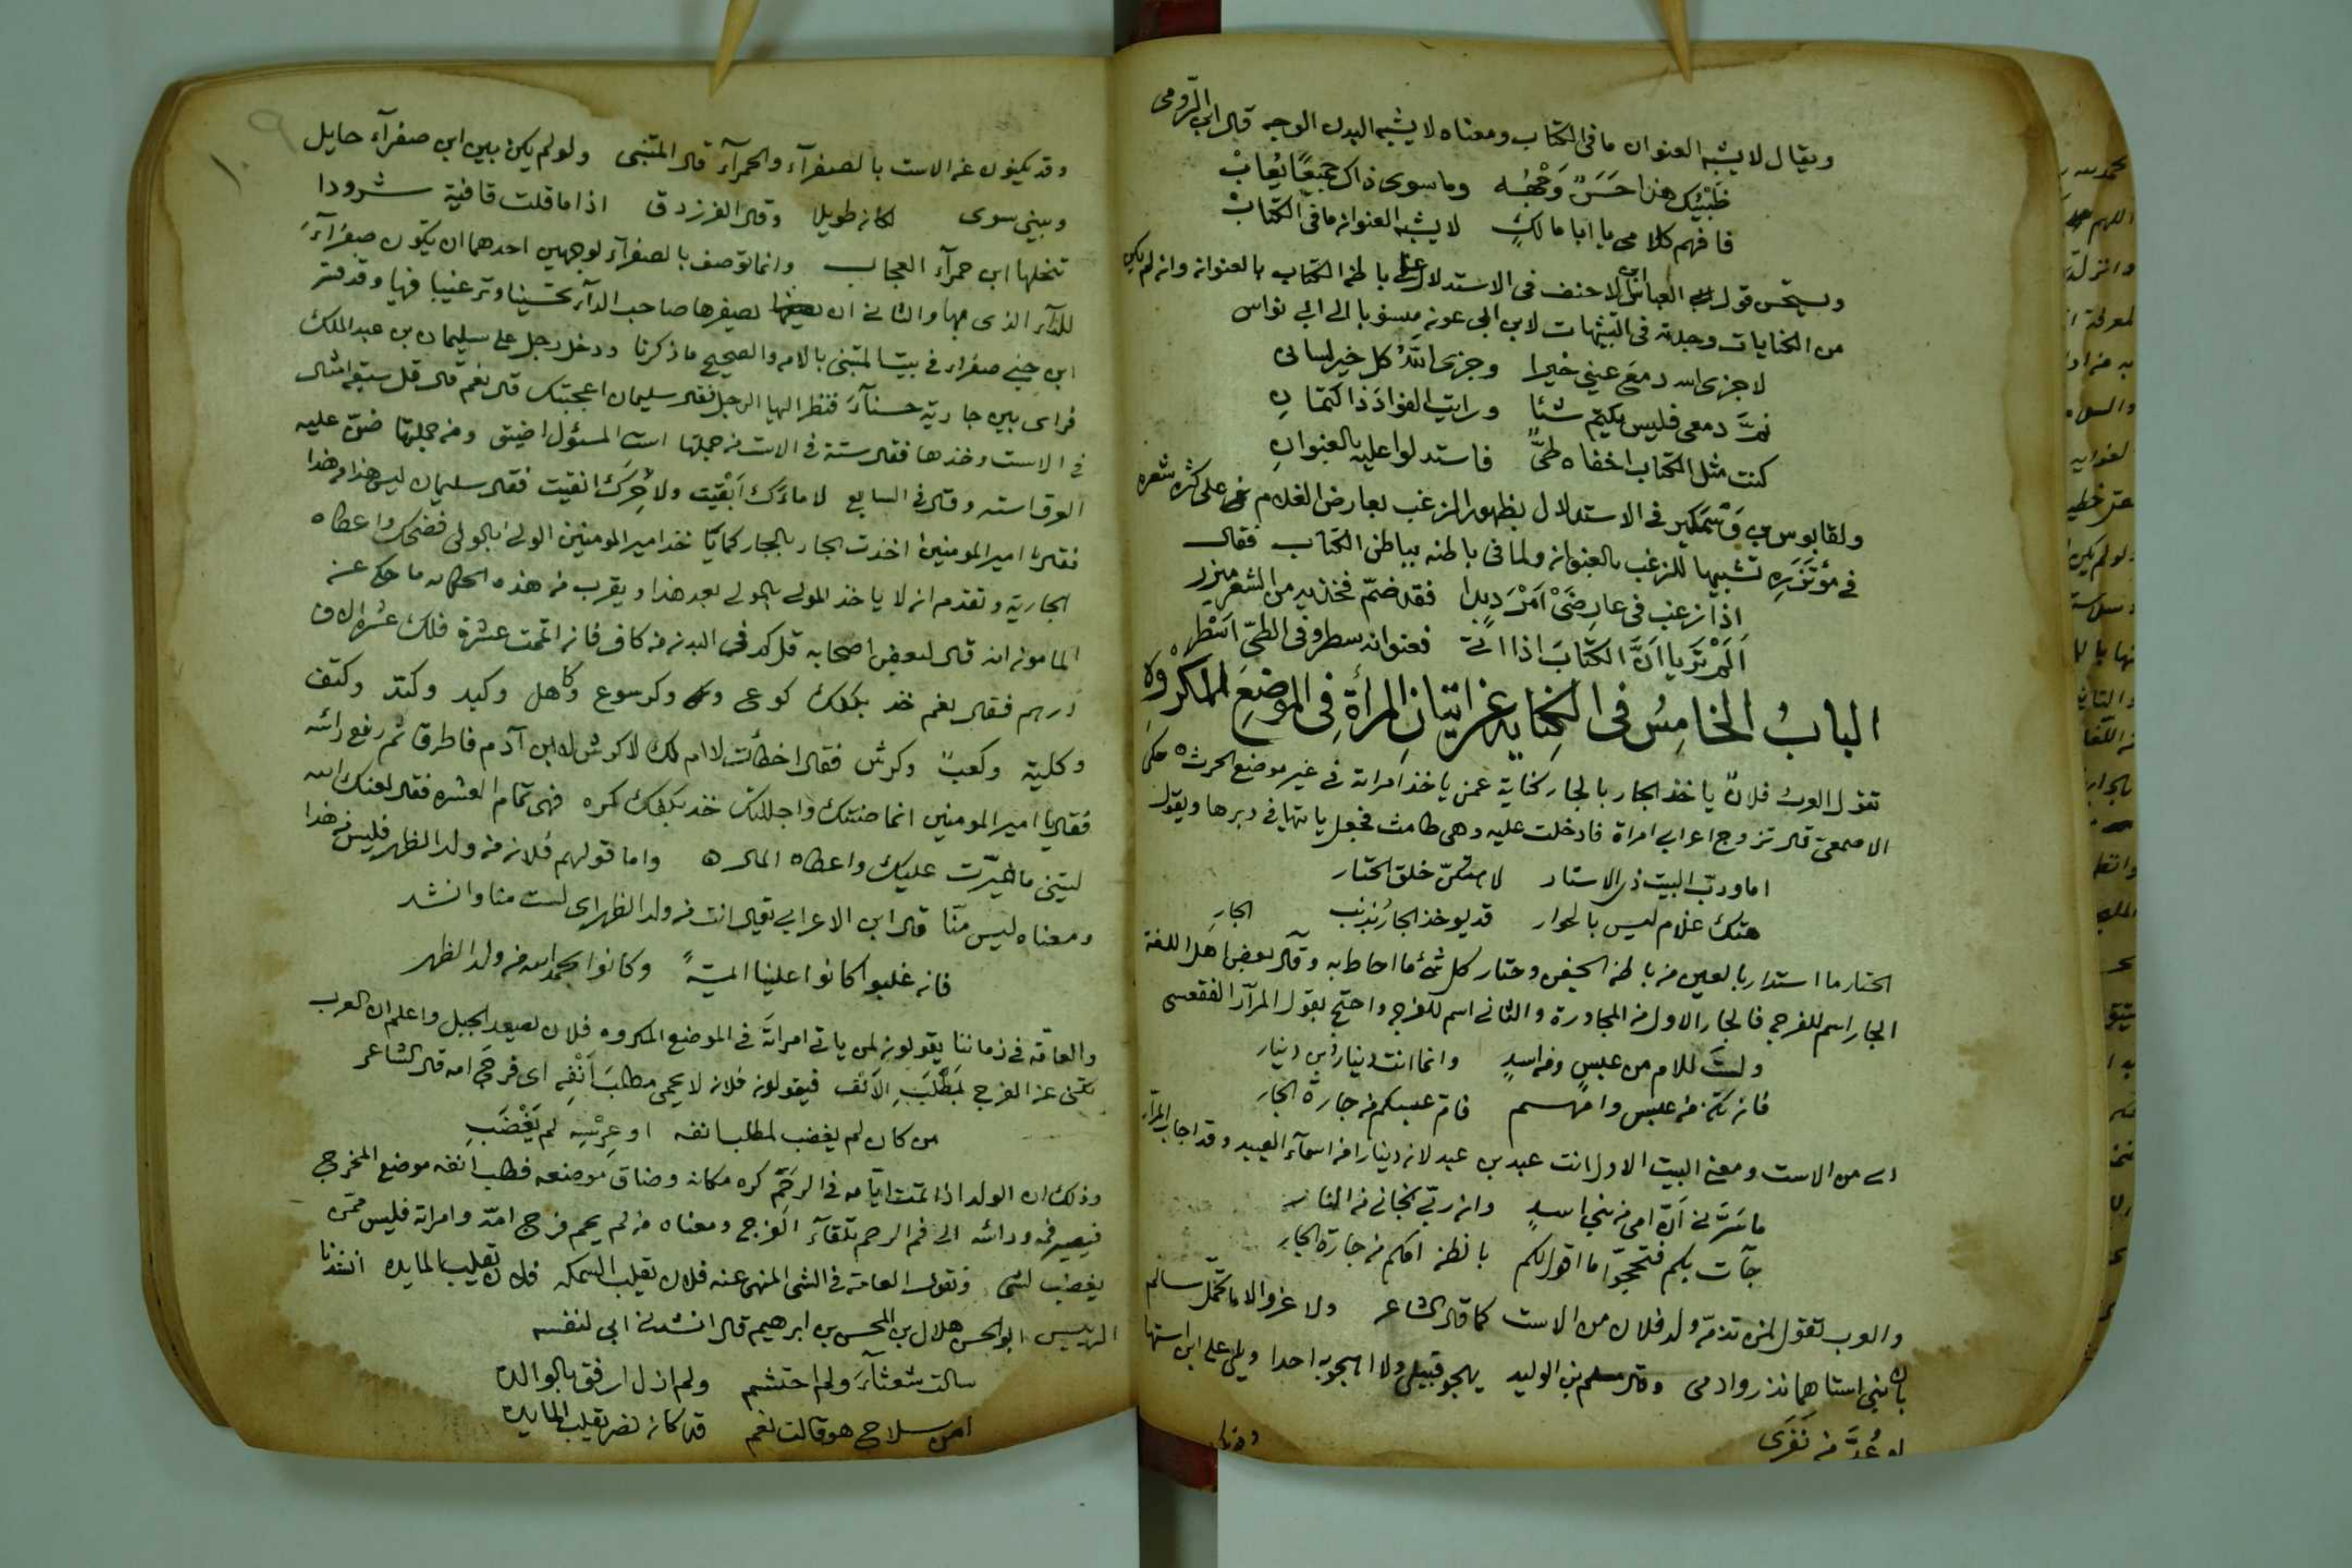 ويقال لا يشبه العنوان ما فى الكتاب ومعناه لا يشبه البدن الوجه قال ابن الرومى
ظبيك هذا حَسَنٌ وَجْهُه وما سوى ذاك جميعًا يُعابْ
فافهم كلامى يا ابا مالكٍ لا يشبه العنوان ما فى الكتابْ
ويستحسن قول العباس ابن الاحنف فى الاستدلال على باطن الكتاب بالعنوان وان لم يكن
من الكنايات وجدته فى التشبيهات لابن ابى عون منسوبا الى ابى نواس
لا جزى الله دمعَ عينى خيرا وجزى اللهُ كل خير لسانى
نمَّ دمعى فليس يكتم شيئًا ورايت الفواد ذا كتمانِ
كنت مثل الكتاب اخفاه طىٌّ فاستدلوا عليه بالعنوانِ
ولقابوس بن وَشْمَكير فى الاستدلال بظهور الزغب بعارض الغلام على كثرة شعره
فى مؤتَزَرِه تشبيها للزغب بالعنوان ولما فى باطنه بباطن الكتاب فقال
اذا زغب فى عارِضَىْ اَمْرَدٍ بدا فقد ضمّ فخذيه من الشعر ميزر
اَلَمْ تَرَ يا اَنَّ الكتابَ اذا اتى فعنوانه سطر وفى الطىّ اَسْطُر
البابُ الخامِسُ فى الكِنايةِ عَن اتيَانِ المرأةِ فِى الموضعِ المكرُوْه
تقول العرب فلانٌ ياخذ الجار بالجار كناية عمن ياخذ امراته فى غير موضع الحرث حكى
الاصمعى قال تزوج اعرابى امراة فادخلت عليه وهى طامث فجعل ياتيها فى دبرها ويقول
اما وربّ البيت ذى الاستار لاهتكنّ حلق الحتار
هتك غلام ليس بالخوار قد يوخذ الجار بذنب الجارِ
الحتار ما استدار بالعين من باطن الجفن وحتار كل شئ ما احاط به وقال بعض اهل اللغة
الجار اسم للفرج فالجار الاول من المجاورة والثانى اسم للفرج واحتج بقول المرار الفقعسى
ولستَ للام من عبسٍ ومن اسدٍ وانما انت دينار بن دينار
فان تكن من عبس وامهم فام عبسكم من جارة الجار
اى من الاست ومعنى البيت الاول انت عبد بن عبد لان دينارا من اسمآء العبيد وقد اجاب المرار
ما سَرَّنى اَنّ امى من بنى اسدٍ وان ربّى نجانى من النار
جآت بكم فتحجّوا ما اقول لكم بالظن امكم من جارة الجارِ
والعرب تقول لمن تذمّه ولد فلان من الاست كما قال الشاعر ولا غرو الا ما تحمّل سالم
بان بنى استاهها نذروا دمى وقال مسلم بن الوليد يهجو قبيلى ولا اهجو به احدا ويلى على ابن استها
لو عُدَّ من نَفَرى
وقد يكنون عن الاست بالصفرآء والحمرآء قال المتنبى ولو لم يكن بين ابن صفرآء حايل
وبينى سوى لكان طويلا وقال الفرزدق اذا ما قلت قافية شرودا
تنحلها ابن حمرآء العجان وانما توصف بالصفرآء لوجهين احدهما ان يكون صفرآءَ
للدآء الذى بها والثانى ان يصفرها صاحب الدآء تحسينا وترغيبا فيها وقد فسر
ابن جنى صفراء فى بيت المتنبى بالامه والصحيح ما ذكرنا ودخل رجل على سليمان بن عبد الملك
فراى بين جارية حسنآءَ فنظر اليها الرجل فقال سليمان اعجبتك قال نعم قال قل سبعة امثال
فى الاست وخذها فقال ستة فى الاست من جملتها است المسئول اضيق ومن جملتها ضنّ عليه
العرق استه وقال فى السابع لا ماءَك اَبْقَيْت ولا حِرَك انقيت فقال سليمان ليس هذا من هذا
فقال يا امير المومنين اخذت الجار بالجار كما ياخذ امير المومنين الولى بالمولى فضحك واعطاه
الجارية وتقدم ان لا ياخذ المولى بالمولى بعد هذا ويقرب من هذه الحكايه ما حكى عن
المامون انه قال لبعض اصحابه قل كم فى البدن من كاف فان اتممت عشرة فلك عشرة الاف
درهم فقال نعم خذ بكفك كوع وكرسوع وكاهل وكبد وكتد وكتف
وكلية وكعبٌ وكرش فقال اخطأت لا ام لك لا كرش لابن آدم فاطرق ثم رفع رأسه
فقال يا امير المومنين انما صنتك واجللتك خذ بكفك كمره فهى تمام العشره فقال لعنك الله
ليتنى ما خيّرت عليك واعطاه المال ه واما قولهم فلان من ولد الظهر فليس من هذا
ومعناه ليس منّا قال ابن الاعرابى يقال انت من ولد الظهر اى لست منا وانشد
فان غلبوا كانوا علينا ائمةً وكانوا بحمد الله من ولد الظهر
والعامّه فى زماننا يقولون لمن ياتى امراتَه فى الموضع المكروه فلان يصعد الجبل واعلم ان العرب
تكنى عن الفرج بمَطْلَبِ الاَنف فيقولون فلان لا يحمى مطلبَ اَنْفِه اى فرجَ امه قال الشاعر
من كان لم يغضب لمطلب انفه او عِرْسِه لم يَغْضَبِ
وذلك ان الولد اذا تمت ايّامه فى الرحِم كره مكانه وضاق موضعه فطلب انفه موضع المخرج
فيصير فمه وراسه الى فم الرحم تلقآءَ الفرج ومعناه من لم يحم فرج امّه وامراته فليس ممن
يغضب لشى وتقول العامة فى الشى المنهى عنه فلان يقلب السمكه فلان يقلب المايده انشدنا
الرئيس ابو الحسن هلال بن المحسن بن ابرهيم قال انشدنى ابى لنفسه
سالت شعثآءَ ولم احتشم ولم ازل ارفق بالوالده
امن سلاح هو قالت نعم قد كان نصر يقلب المايده